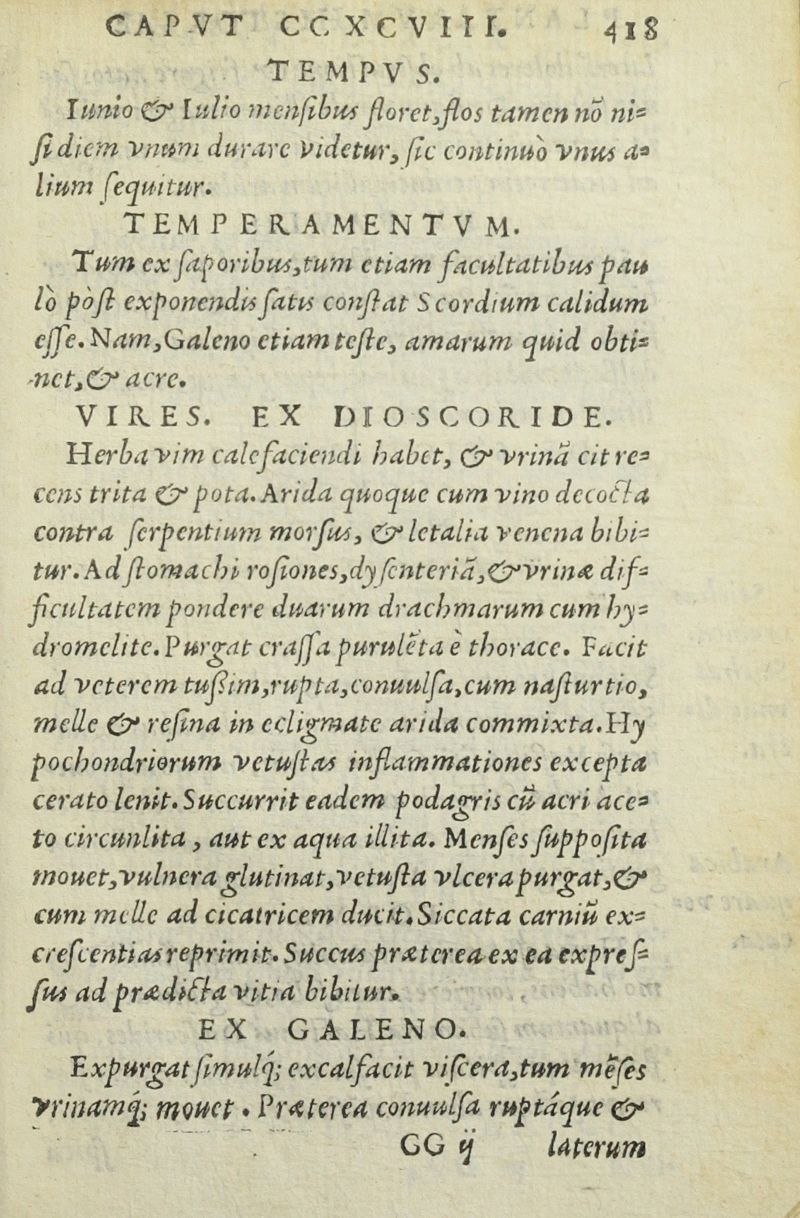 CAPVT CCXCVIII. 418
TEMPVS.
Iunio & Iulio mensibus floret, flos tamen nō ni-
si diem vnum durare videtur, sic continuò vnus a-
lium sequitur.
TEMPERAMENTVM.
Tum ex saporibus, tum etiam facultatibus pau
lò pòst exponendis satis constat Scordium calidum
esse. Nam, Galeno etiam teste, amarum quid obti-
net, & acre.
VIRES. EX DIOSCORIDE.
Herba vim calefaciendi habet, & vrinā cit re-
cens trita & pota. Arida quoque cum vino decocta
contra serpentium morsus, & letalia venena bibi-
tur. Ad stomachi rosiones, dysenteriā, & vrinæ dif-
ficultatem pondere duarum drachmarum cum hy-
dromelite. Purgat crassa purulēta è thorace. Facit
ad veterem tussim, rupta, conuulsa, cum nasturtio,
melle & resina in ecligmate arida commixta. Hy
pochondriorum vetustas inflammationes excepta
cerato lenit. Succurrit eadem podagris cū acri ace-
to circunlita, aut ex aqua illita. Menses supposita
mouet, vulnera glutinat, vetusta vlcera purgat, &
cum melle ad cicatricem ducit. Siccata carniū ex-
crescentias reprimit. Succus præterea ex ea expres-
sus ad prædicta vitia bibitur.
EX GALENO.
Expurgat simulq́; excalfacit viscera, tum mēses
vrinamq́; mouet. Præterea conuulsa ruptáque &
GG ij laterum